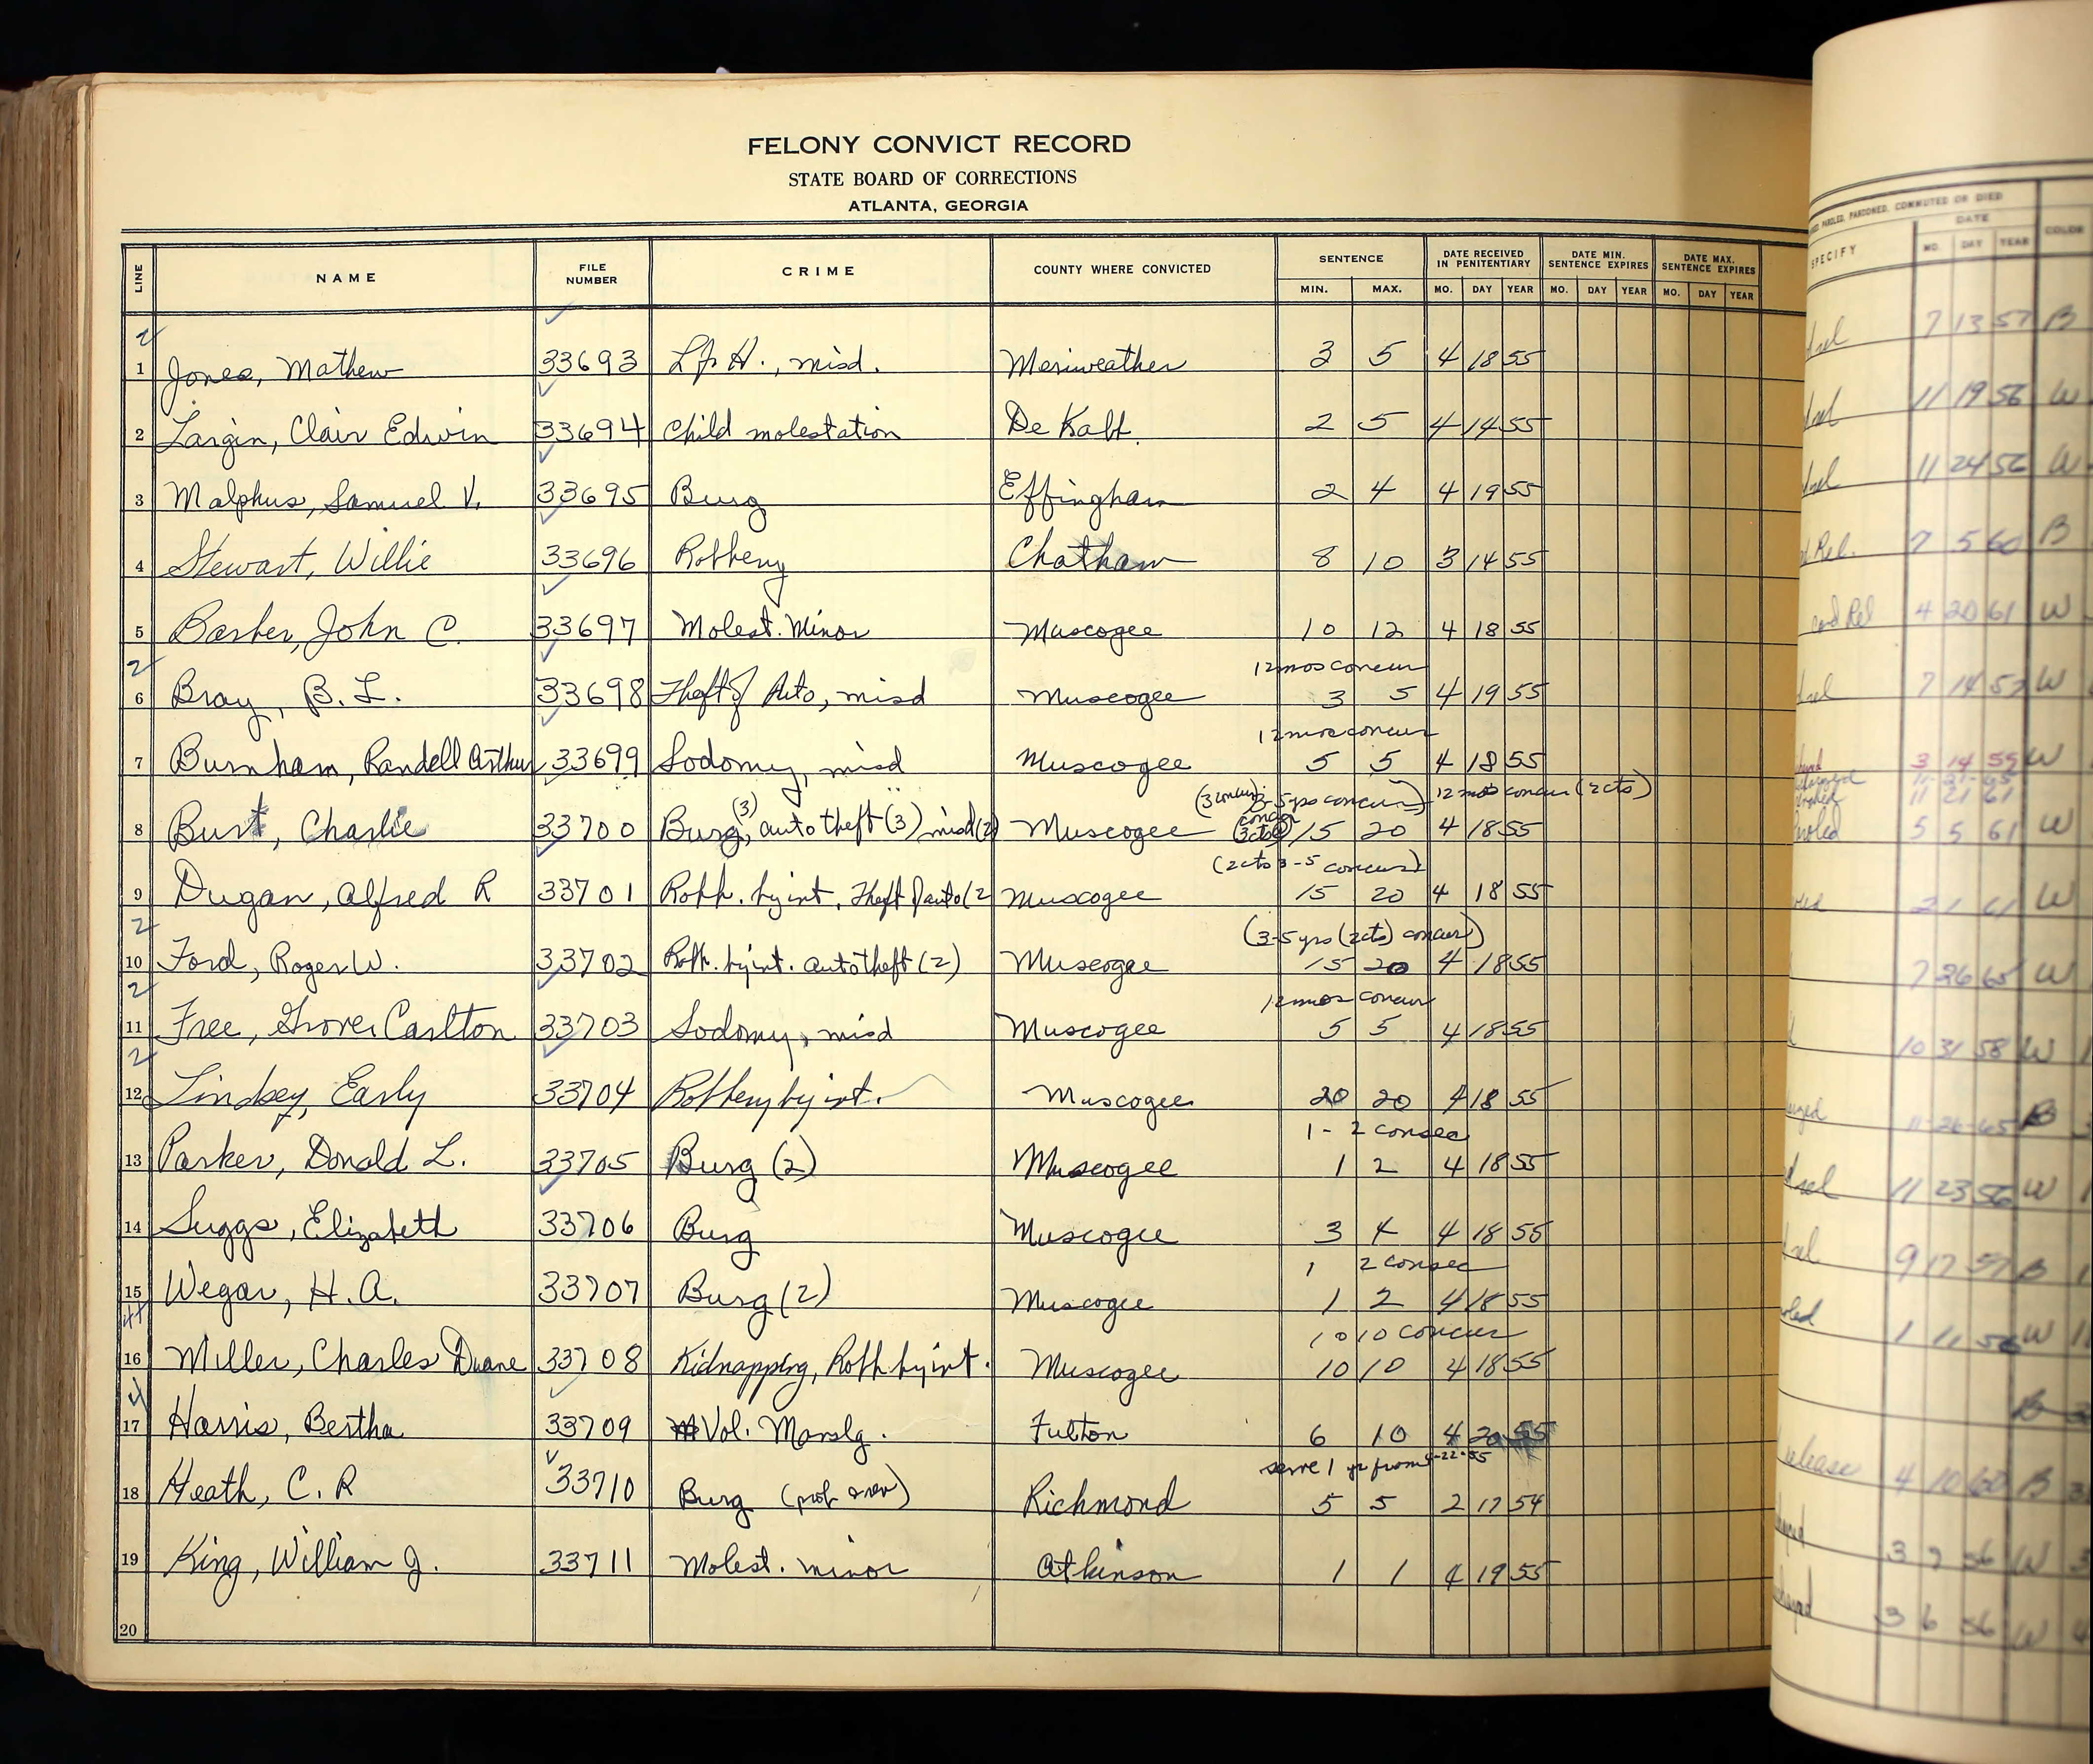 FELONY CONVICT RECORD
STATE BOARD OF CORRECTIONS
ATLANTA, GEORGIA
LINE NAME FILE NUMBER CRIME COUNTY WHERE CONVICTED SENTENCE DATE RECEIVED IN PENITENTIARY DATE MIN. SENTENCE EXPIRES DATE MAX. SENTENCE EXPIRES
MIN. MAX. MO. DAY YEAR MO. DAY YEAR MO. DAY YEAR
2
1 Jones, Mathew 33693 Lf H., misd. Meriweather 3 5 4 18 55
2 Largin, Clair Edwin 33694 Child molestation De Kalb. 2 5 4 14 55
3 Malphus, Samuel V. 33695 Burg Effingham 2 4 4 19 55
4 Stewart, Willie 33696 Robbery Chatham 8 10 3 14 55
5 Barber, John C. 33697 Molest. Minor Muscogee 10 12 4 18 55
2 12 mos concur
6 Bray, B. L. 33698 Theft of Auto, misd Muscogee 3 5 4 19 55
12 mos concur
7 Burnham, Randell Arthur 33699 Sodomy, misd Muscogee 5 5 4 18 55
(3 concur) 3-5 yrs concur) 12 mos concur (2cts)
8 Burt, Charlie 33700 Burg (3), auto theft (3) misd (2) Muscogee concur (3cts) 15 20 4 18 55
(2cts 3-5 concur)
9 Dugan, Alfred R 33701 Robb. by int, Theft of auto (2 Muscogee 15 20 4 18 55
2 (3-5 yrs (2cts) concur)
10 Ford, Roger W. 33702 Robb. by int. auto theft (2) Muscogee 15 20 4 18 55
2 12 mos concur
11 Free, Grover Carlton 33703 Sodomy, misd Muscogee 5 5 4 18 55
2
12 Lindsey, Early 33704 Robbery by int. Muscogee 20 20 4 18 55
1 - 2 consec
13 Parker, Donald L. 33705 Burg (2) Muscogee 1 2 4 18 55
14 Suggs, Elizabeth 33706 Burg Muscogee 3 4 4 18 55
1 2 consec
15 Wegar, H. A. 33707 Burg (2) Muscogee 1 2 4 18 55
10 10 concur
16 Miller, Charles Duane 33708 Kidnapping, Robb by int. Muscogee 10 10 4 18 55
17 Harris, Bertha 33709 Vol. Manslg. Fulton 6 10 4 20 55
serve 1 yr from 4-22-55
18 Heath, C. R 33710 Burg (prob rev) Richmond 5 5 2 17 54
19 King, William J. 33711 Molest. minor Atkinson 1 1 4 19 55
20
PAROLED, PARDONED, COMMUTED OR DIED
SPECIFY DATE COLOR
MO. DAY YEAR
rel 7 13 57 B
rel 11 19 56 W
rel 11 24 56 W
Rel. 7 5 60 B
cond Rel 4 20 61 W
rel 7 14 57 W
3 14 55 W
11-21-65
11 21 61
Paroled 5 5 61 W
2 1 61 W
7 26 65 W
10 31 58 W
11-26-65 B
rel 11 23 56 W
rel 9 17 57 B
1 11 56 W
B
release 4 10 60 B
3 9 56 W
3 6 56 W